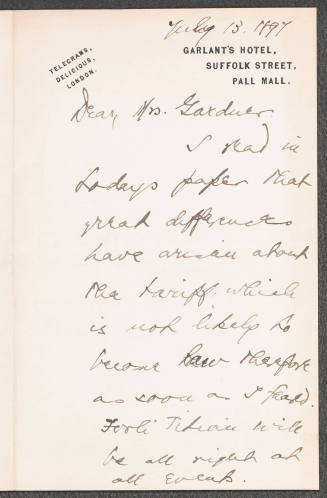 July 13. 1897
TELEGRAMS,
DELICIOUS,
LONDON.
GARLANT'S HOTEL,
SUFFOLK STREET,
PALL MALL.
Dear Mrs. Gardner
I read in
todays paper that
great differences
have arisen about
the tariff. which
is not likely to
become law therefore
as soon as I feared.
Titian will
be all right at
all events.